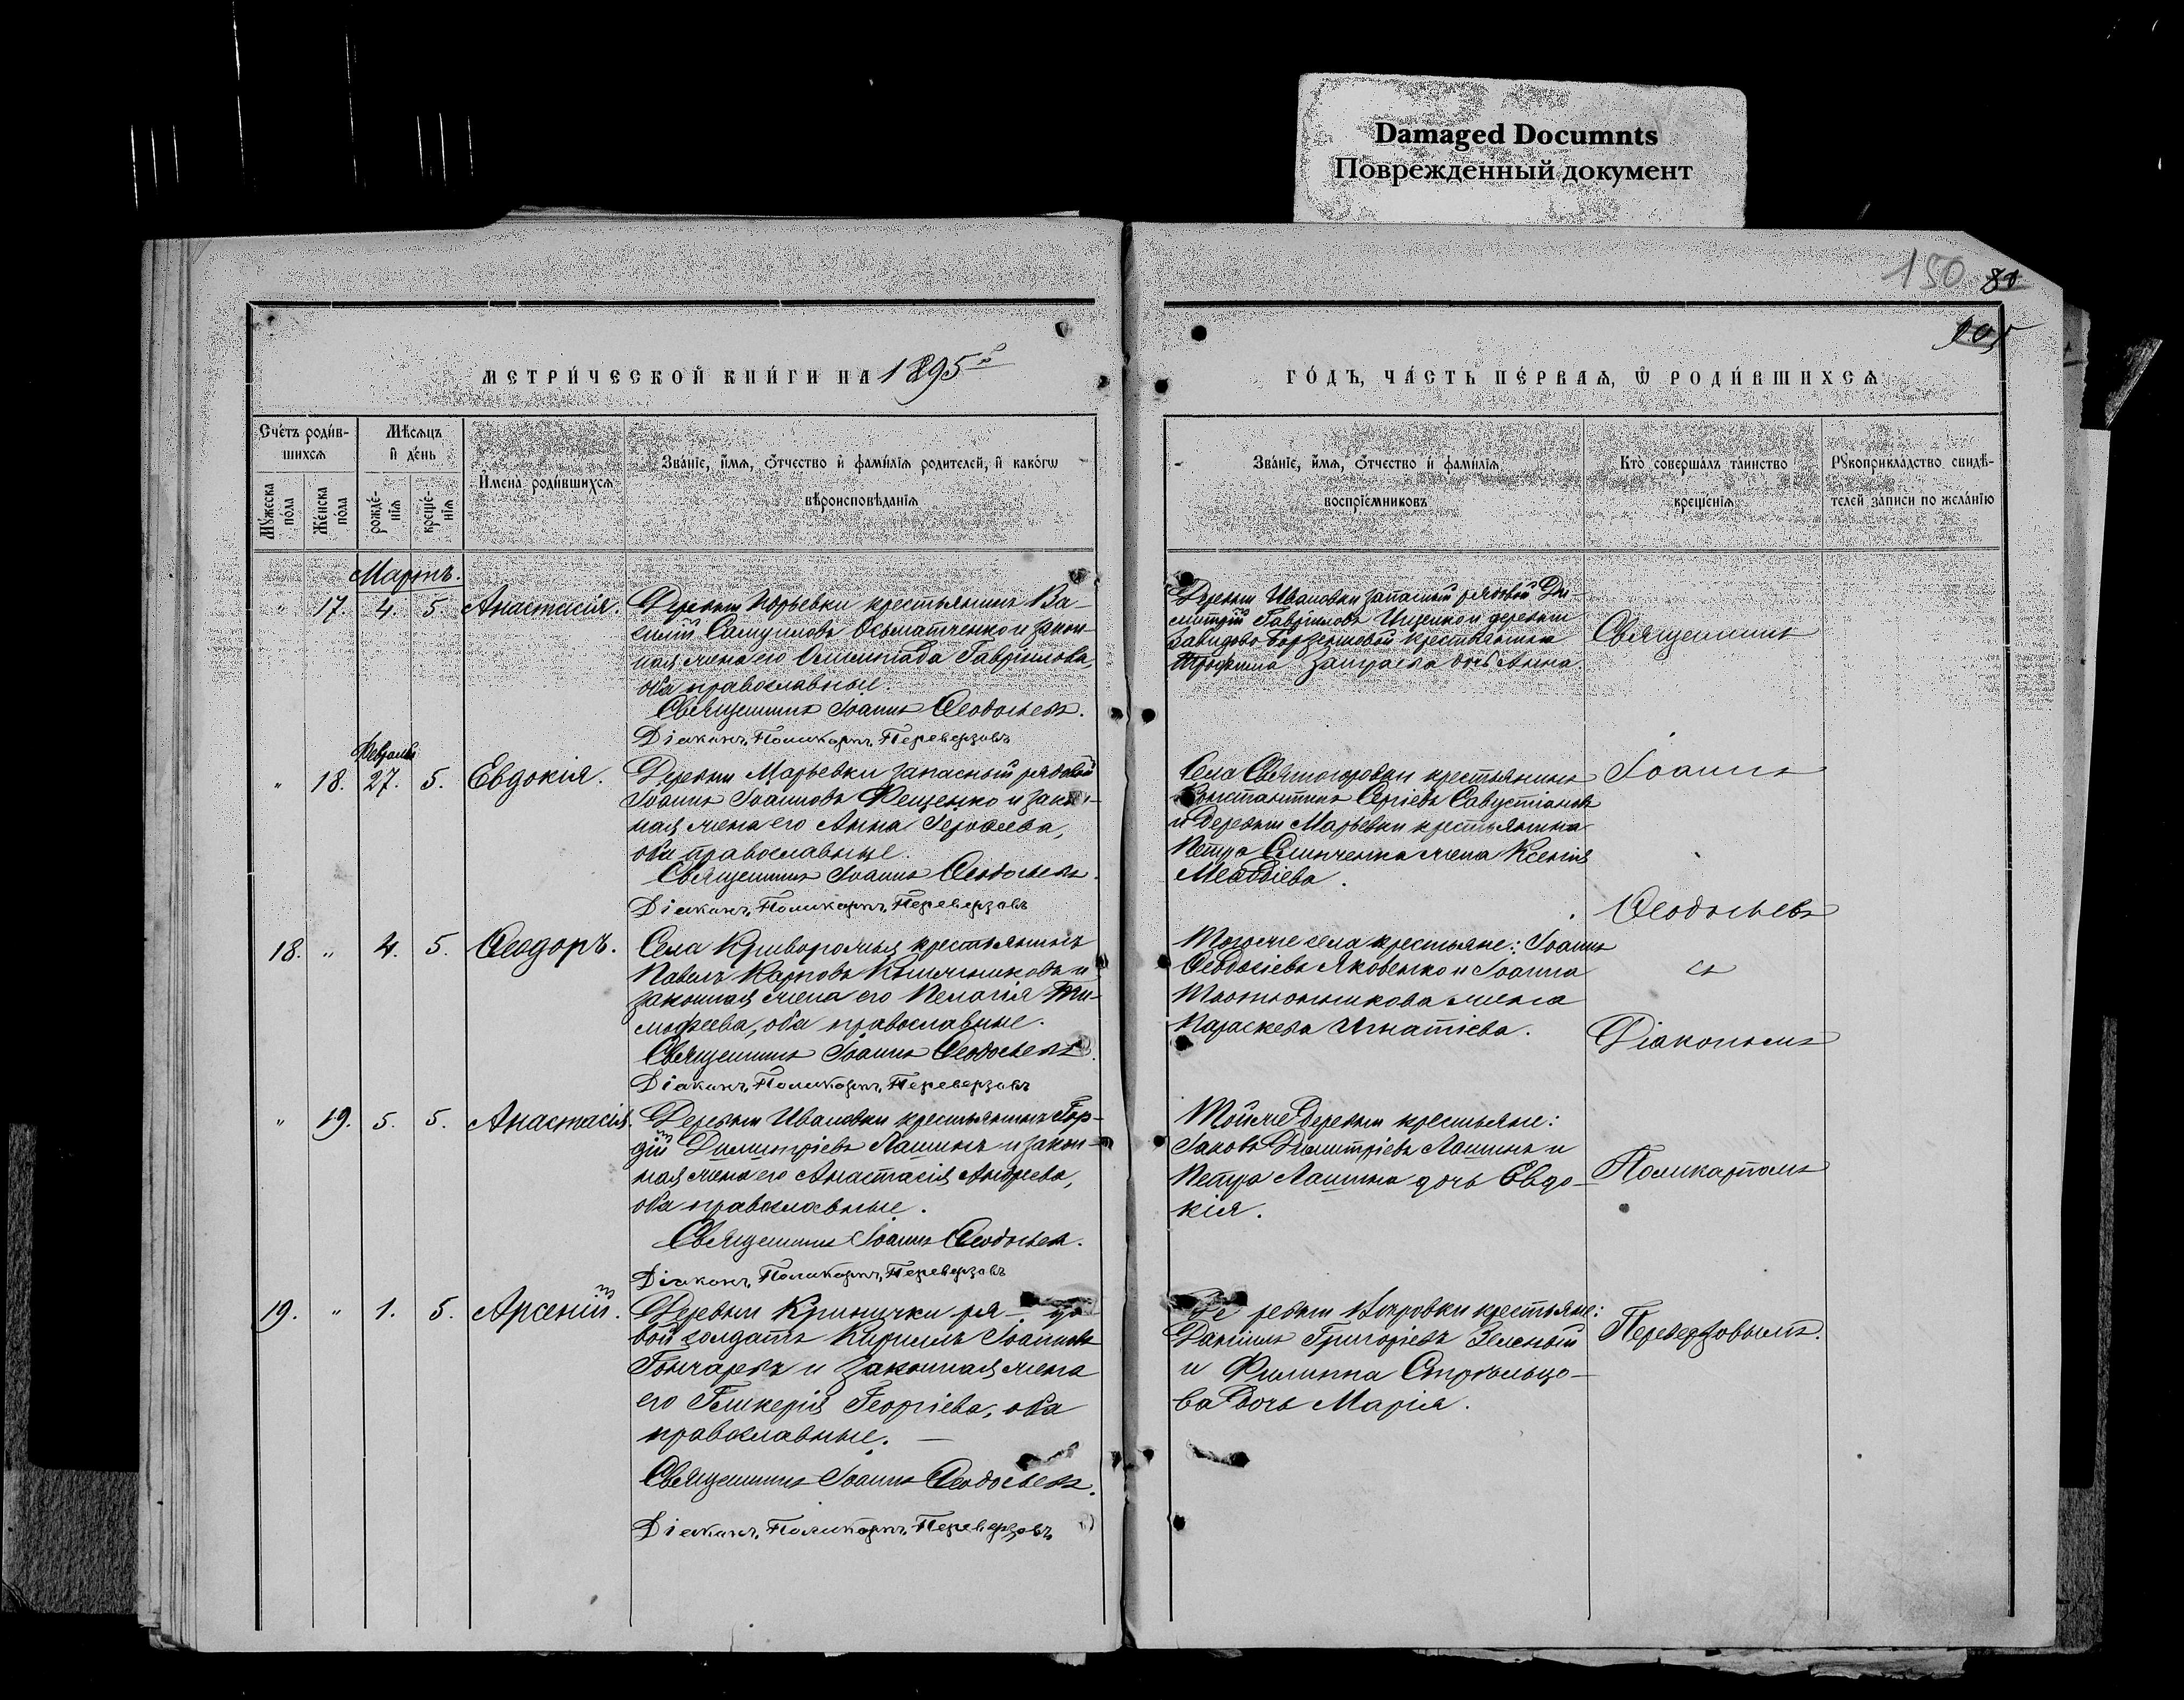 Damaged Documnts
Поврежденный документ
150
80
МЕТРИ́ЧЕСКОЙ КНИ́ГИ НА 1895й
ГО́ДЪ, ЧА́СТЬ ПЕ́РВАѦ, Ѿ РОДИ́ВШИХСѦ
Сче́тъ роди́в-
шихсѧ
Мꙋ́жеска по́ла
Же́нска по́ла
Мѣ́сѧцъ
и҆ де́нь
рожде́-
нїѧ
креще́-
нїѧ
И҆мена̀ роди́вшихсѧ
Зва́нїе, и҆́мѧ, ѻ҆́тчество и҆ фами́лїѧ роди́телей, и҆ како́гѡ
вѣроисповѣ́данїѧ
Зва́нїе, и҆́мѧ, ѻ҆́тчество и҆ фами́лїѧ
воспрїе́мниковъ
Кто̀ соверша́лъ та́инство
креще́нїѧ
Рꙋкоприкла́дство свидѣ́-
телей за́писи по жела́нїю
Мартъ.
" 17. 4. 5. Анастасія.
Деревни Юрьевки крестьянинъ Ва-
силій Самуиловъ и закон-
ная жена его Олимпіада Гавріилова,
оба православные.
Священникъ Іоаннъ Ѳеодосьевъ.
Діаконъ Поликарпъ Переверзовъ
Деревни Ивановки запасный рядовой Ди-
митрій Гавріиловъ Ищенко и деревни
крестьянина
Трофима дочь Анна.
Священникъ
Февраль
" 18. 27. 5. Евдокія.
Деревни Марьевки запасный рядовой
Іоаннъ Іоанновъ Фещенко и закон-
ная жена его Анна Іерофеева,
оба православные.
Священникъ Іоаннъ Ѳеодосьевъ.
Діаконъ Поликарпъ Переверзовъ
Села Святогоровки крестьянинъ
Константинъ Сергіевъ Савустіановъ
и деревни Марьевки крестьянина
Петра жена Ксенія
Меѳодіева.
Іоаннъ
Ѳеодосьевъ
18. " 4. 5. Ѳеодоръ.
Села Криворожья крестьянинъ
Павелъ Карповъ и
законная жена его Пелагія Ти-
мофеева, оба православные.
Священникъ Іоаннъ Ѳеодосьевъ.
Діаконъ Поликарпъ Переверзовъ
Тогоже села крестьяне: Іоаннъ
Ѳеодосіевъ Яковенко и Іоанна
жена
Параскева Игнатіева.
съ
Діакономъ
" 19. 5. 5. Анастасія.
Деревни Ивановки крестьянинъ Гор-
дій Димитріевъ Лашинъ и закон-
ная жена его Анастасія Андреева,
оба православные.
Священникъ Іоаннъ Ѳеодосьевъ.
Діаконъ Поликарпъ Переверзовъ
Тойже деревни крестьяне:
Іаковъ Димитріевъ Лашинъ и
Петра Лашина дочь Евдо-
кія.
Поликарпомъ
19. " 1. 5. Арсеній.
Деревни Кринички рядо-
вой солдатъ Кириллъ Іоанновъ
Гончаровъ и законная жена
его Гликерія Георгіева, оба
православные.
Священникъ Іоаннъ Ѳеодосьевъ.
Діаконъ Поликарпъ Переверзовъ
Деревни крестьяне:
Даніилъ Григоріевъ Зеленый
и Филиппа Стрѣльцо-
ва дочь Марія.
Переверзовымъ.